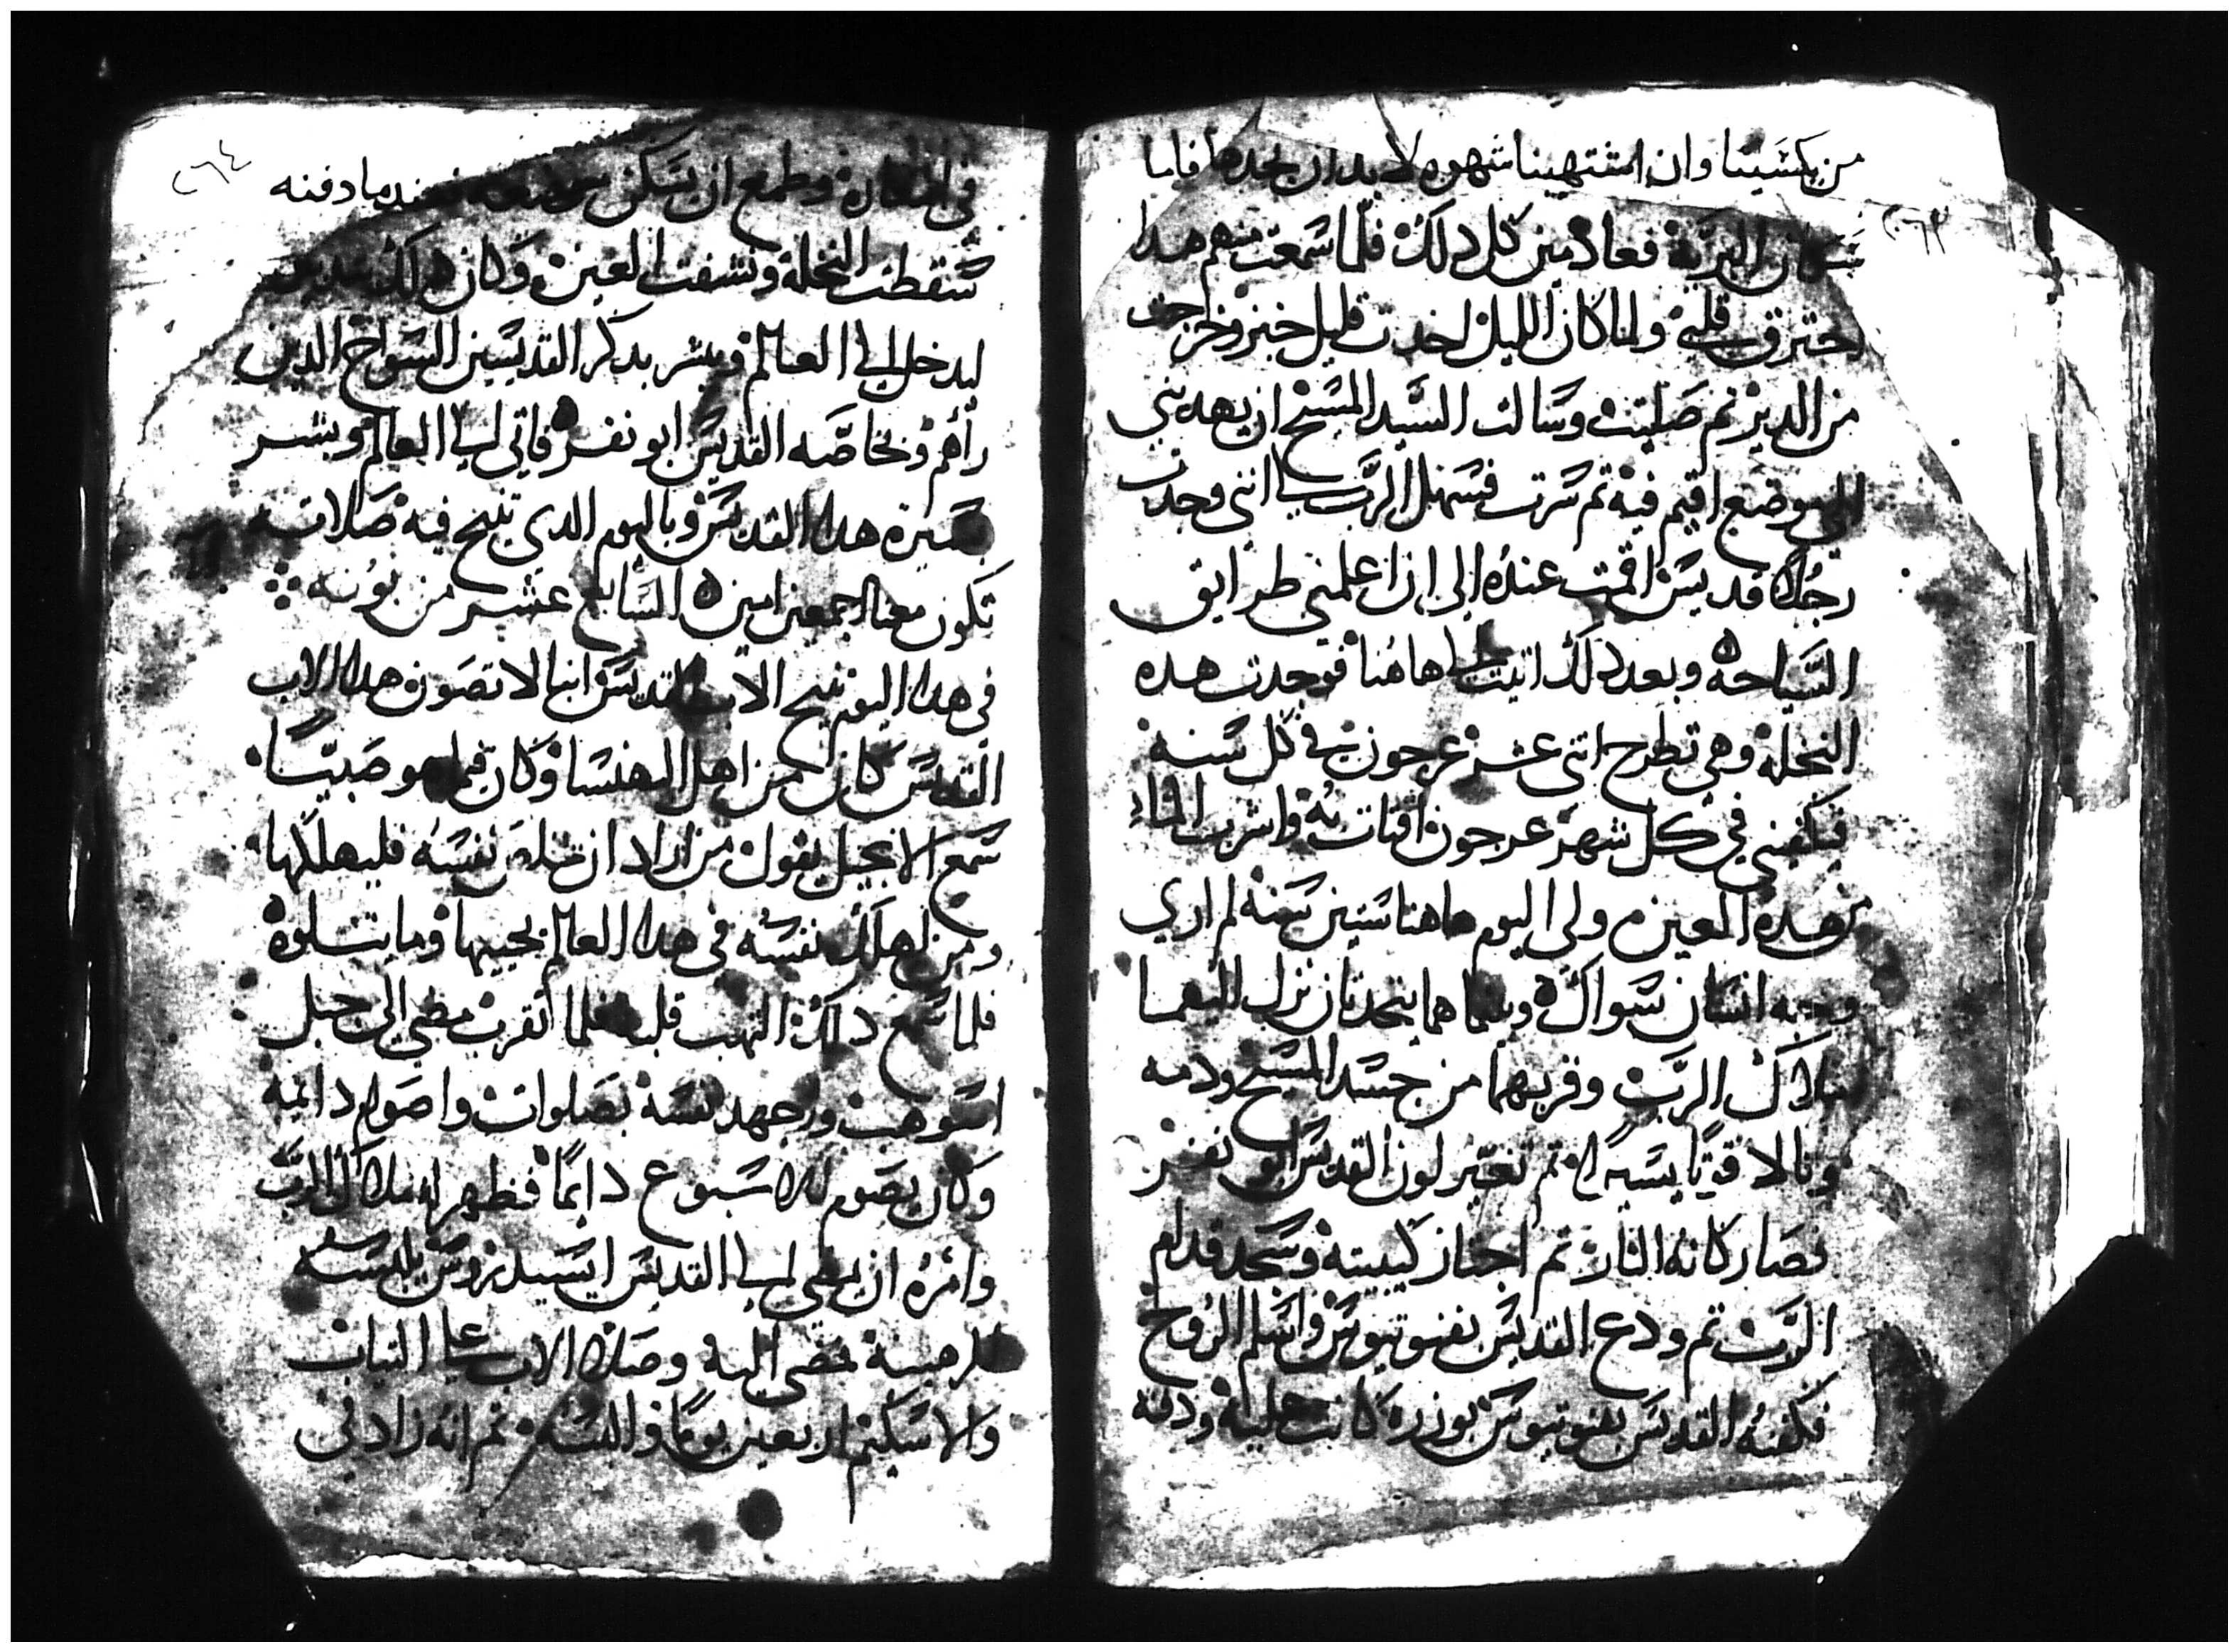 من يكسينا وان اشتهينا شهوه لا بد ان نجدها فاما
سكان البرية فعادمين كل دلك فلما سمعت منهم هدا
احترق قلبي ولما كان الليل اخدت قليل خبز وخرجت
من الدير تم صليت وسالت السيد المسيح ان يهديني
الي موضع اقيم فيه تم سرت فسهل الرب لي انني وجدت
رجلا قديس اقمت عنده الى ان علمني طرايق
السياحه وبعد دلك اتيت الي هاهنا فوجدت هده
النخلة وهي تطرح اتنى عشر عرجون في كل سنة
فيكفيني في كل شهر عرجون اقتات به واشرب الماء
من هده العين ولى اليوم هاهنا ستين سنة لم اري
وجه انسان سواك وبينما هما يتحدتان نزل اليهما
ملاك الرب وقربهما من جسد المسيح ودمه
ونالا قوتا يسيرا تم تغير لون القديس ابو نفر
فصار كانه النار تم احنا ركبتيه وسجد قدام
الرب تم ودع القديس بفنوتيوس واسلم الروح
فكفنه القديس بفنوتيوس بوزره كانت عليه ودفنه
٢٦٣
٢٦٤
في المغارة وطمع ان يسكن موضعه فعندما دفنه
سقطت النخلة ونشفت العين وكان دلك تدبير
ليدخل الي العالم ويبشر بدكر القديسين السواح الدين
راهم وبخاصه القديس ابو نفر فاتى الي العالم وبشر
بسيرة هدا القديس وباليوم الدي تنيح فيه صلاته
تكون معنا اجمعين امين السابع عشر من بونه
في هدا اليوم تنيح الاب القديس انبا لاتصون هدا الاب
القديس كان من اهل البهنسا وكان فيما هو صبيا
سمع الانجيل يقول من اراد ان تخلص نفسه فليهلكها
ومن اهلك نفسه في هدا العالم يحييها وما يتلوه
فلما سمع دلك التهب قلبه فلما تقرب مضي الى جبل
اسوهت واجهد نفسه بصلوات واصوام دايمة
وكان يصوم الاسبوع دايما فظهر له ملاك الرب
وامره ان يمضي الي القديس ايسيدروس يلبسه
للرهبنة فمضى اليه وصلا الاب علي التياب
والاسكيم اربعين يوما والبسه تم انه زاد في